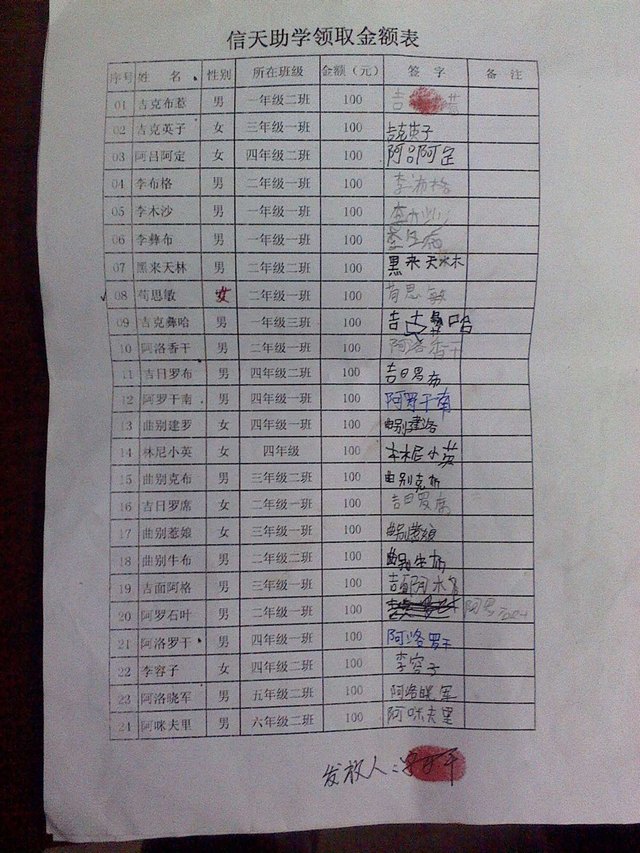 信天助学领取金额表
序号 姓 名 性别 所在班级 金额（元） 签 字 备 注
01 吉克布惹 男 一年级二班 100 吉 惹
02 吉克英子 女 三年级一班 100 吉克英子
03 阿吕阿定 女 四年级二班 100 阿吕阿定
04 李布格 男 二年级一班 100 李布格
05 李木沙 男 一年级一班 100 李木沙
06 李彝布 男 一年级一班 100 李
07 黑来天林 男 二年级二班 100 黑来天林
08 荀思敏 女 二年级一班 100 荀思敏
09 吉克彝哈 男 一年级三班 100 吉克彝哈
10 阿洛香干 男 二年级一班 100 阿洛香干
11 吉日罗布 男 四年级二班 100 吉日罗布
12 阿罗干南 男 四年级一班 100 阿罗干南
13 曲别建罗 女 四年级一班 100 曲别建洛
14 林尼小英 女 四年级 100 林尼小英
15 曲别克布 男 三年级二班 100 曲别克布
16 吉日罗席 女 二年级一班 100 吉日罗席
17 曲别惹娘 女 三年级一班 100 曲别惹娘
18 曲别牛布 男 二年级二班 100 曲别牛布
19 吉面阿格 男 三年级一班 100 吉面阿木
20 阿罗石叶 男 二年级一班 100 阿
21 阿洛罗干 男 四年级一班 100 阿洛罗干
22 李容子 女 四年级二班 100 李容子
23 阿洛晓军 男 五年级二班 100 阿洛晓军
24 阿咪夫里 男 六年级二班 100 阿咪夫里
发放人：